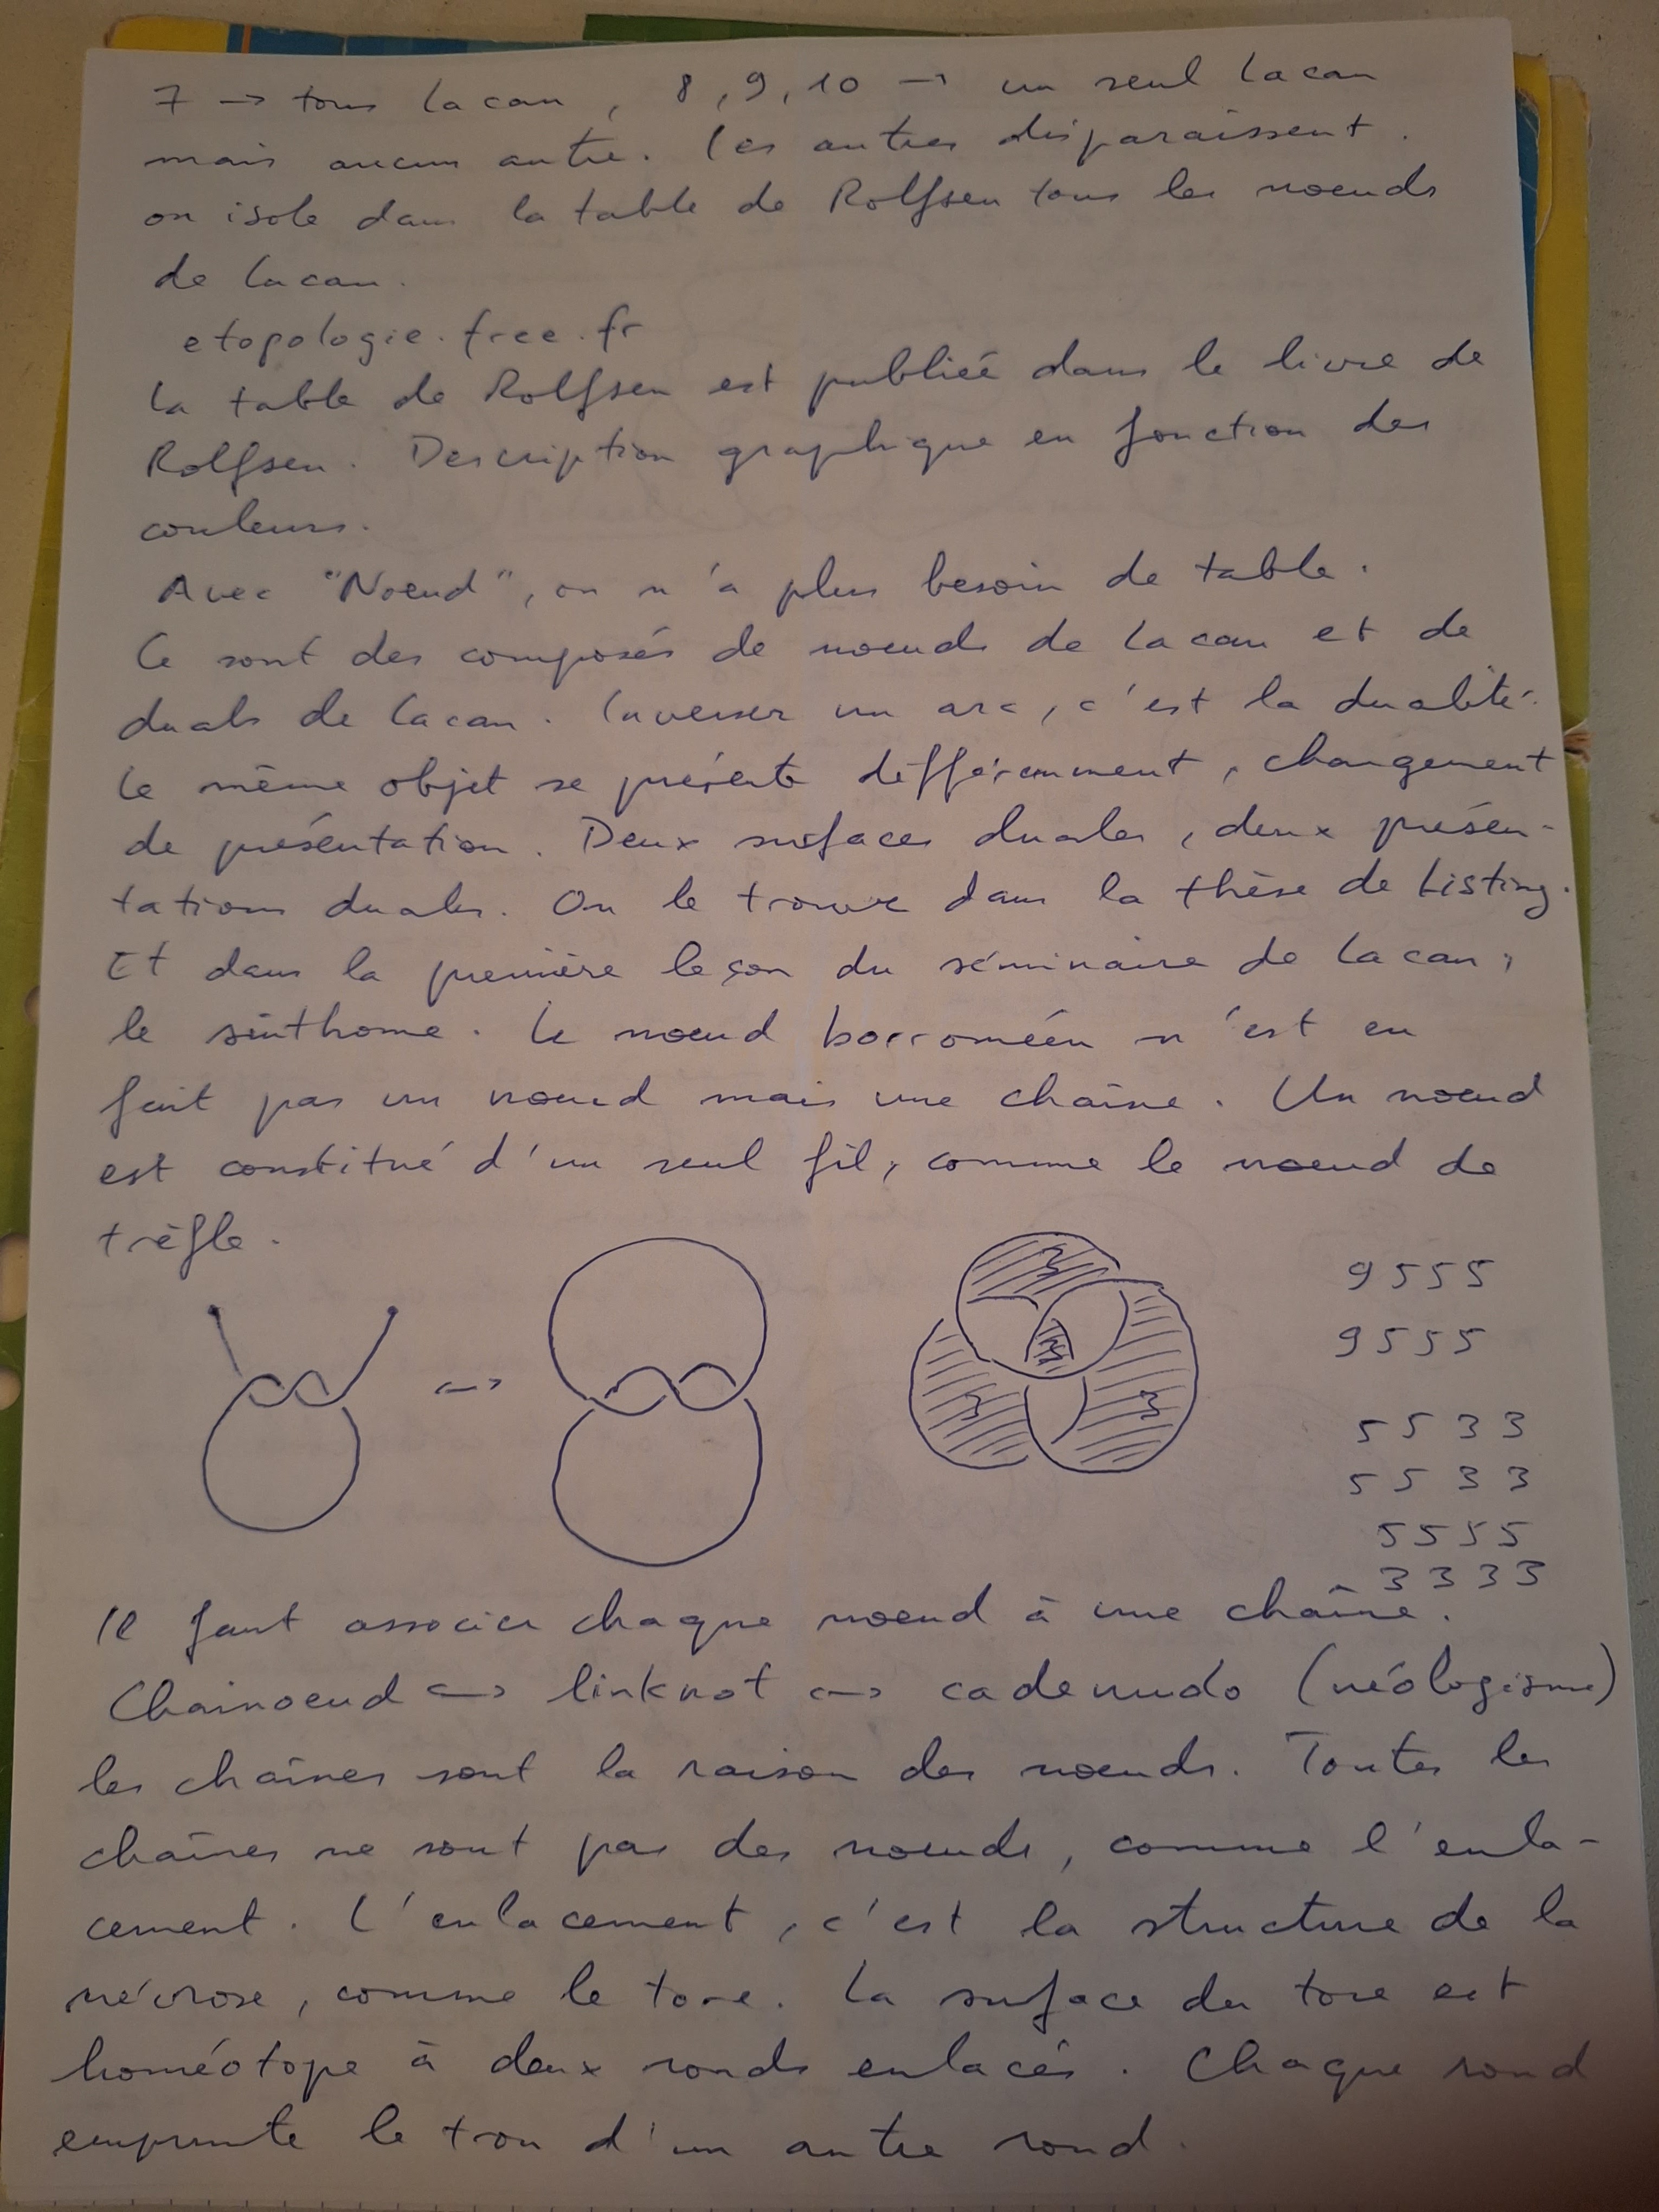 7 → tous Lacan, 8, 9, 10 → un seul Lacan
mais aucun autre. Les autres disparaissent.
on isole dans la table de Rolfsen tous les noeuds
de Lacan.
etopologie.free.fr
La table de Rolfsen est publiée dans le livre de
Rolfsen. Description graphique en fonction des
couleurs.
Avec "Noeud", on n'a plus besoin de table.
Ce sont des composés de noeuds de Lacan et de
duals de Lacan. Inverser un arc, c'est la dualité.
Le même objet se présente différemment, changement
de présentation. Deux surfaces duales, deux présen-
tations duales. On le trouve dans la thèse de Listing.
Et dans la première leçon du séminaire de Lacan,
le sinthome. Le noeud borroméen n'est en
fait pas un noeud mais une chaîne. Un noeud
est constitué d'un seul fil, comme le noeud de
trèfle.
9 5 5 5
9 5 5 5
5 5 3 3
5 5 3 3
5 5 5 5
3 3 3 3
Il faut associer chaque noeud à une chaîne.
Chainoeud ↔ linknot ↔ cadenudo (néologisme)
les chaînes sont la raison des noeuds. Toutes les
chaînes ne sont pas des noeuds, comme l'enla-
cement. L'enlacement, c'est la structure de la
névrose, comme le tore. La surface du tore est
homéotope à deux ronds enlacés. Chaque rond
emprunte le trou d'un autre rond.